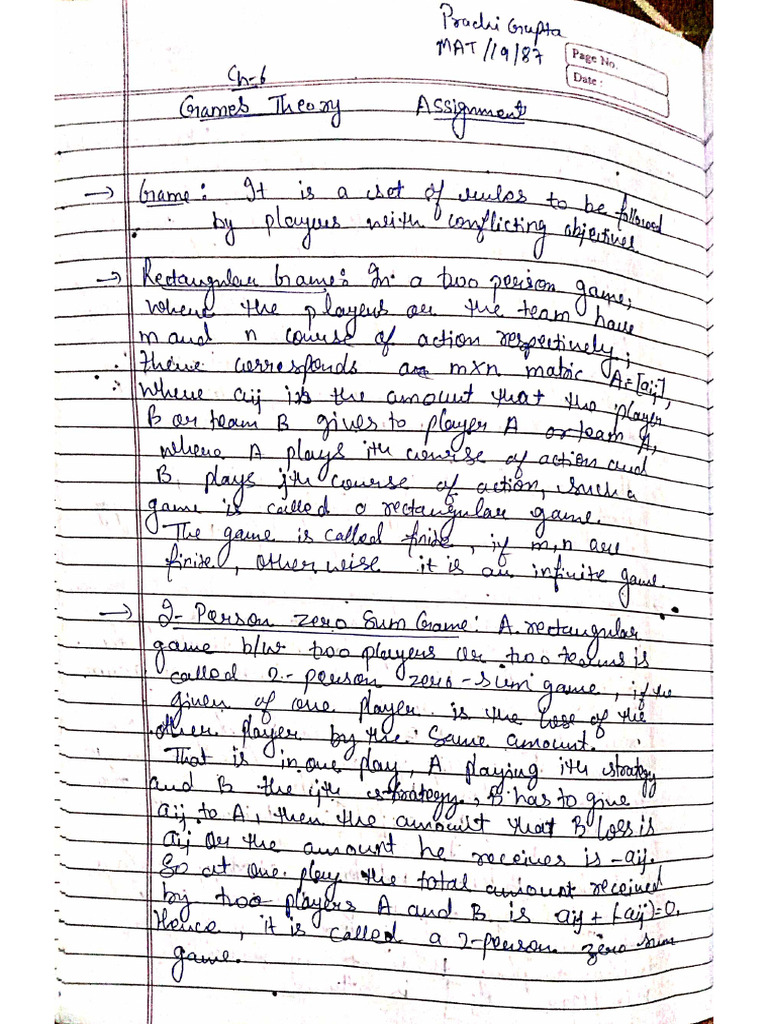 Prachi Gupta
MAT/19/87
Page No.
Date :
Ch-6
Games Theory Assignment
→ Game: It is a set of rules to be followed
by players with conflicting objectives
→ Rectangular Game: In a two person game,
where the players or the team have
m and n course of action respectively,
there corresponds a m×n matric A=[aij],
where aij is the amount that the player
B or team B gives to player A or team A,
where A plays ith course of action and
B plays jth course of action, such a
game is called a rectangular game.
The game is called finite, if m,n are
finite, otherwise it is an infinite game.
→ 2-Person zero Sum Game: A rectangular
game b/w two players or two teams is
called 2-person zero-sum game, if the
given of one player is the lose of the
other player by the same amount.
That is in one play, A playing ith strategy
and B the jth strategy, B has to give
aij to A, then the amount that B loss is
aij or the amount he receives is -aij.
So at one play the total amount received
by two players A and B is aij + (-aij)=0.
Hence, it is called a 2-person zero sum
game.